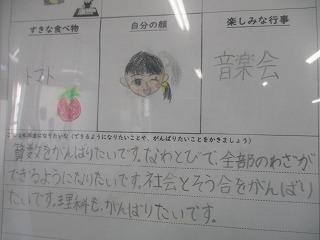 すきな食べ物
自分の顔
楽しみな行事
トマト
音楽会
になりたいな(できるようになりたいことや、がんばりたいことをかきましょう)
算数をがんばりたいです。なわとびで、全部のわざが
できるようになりたいです。社会とそう合をがんばり
たいです。理科も、がんばりたいです。